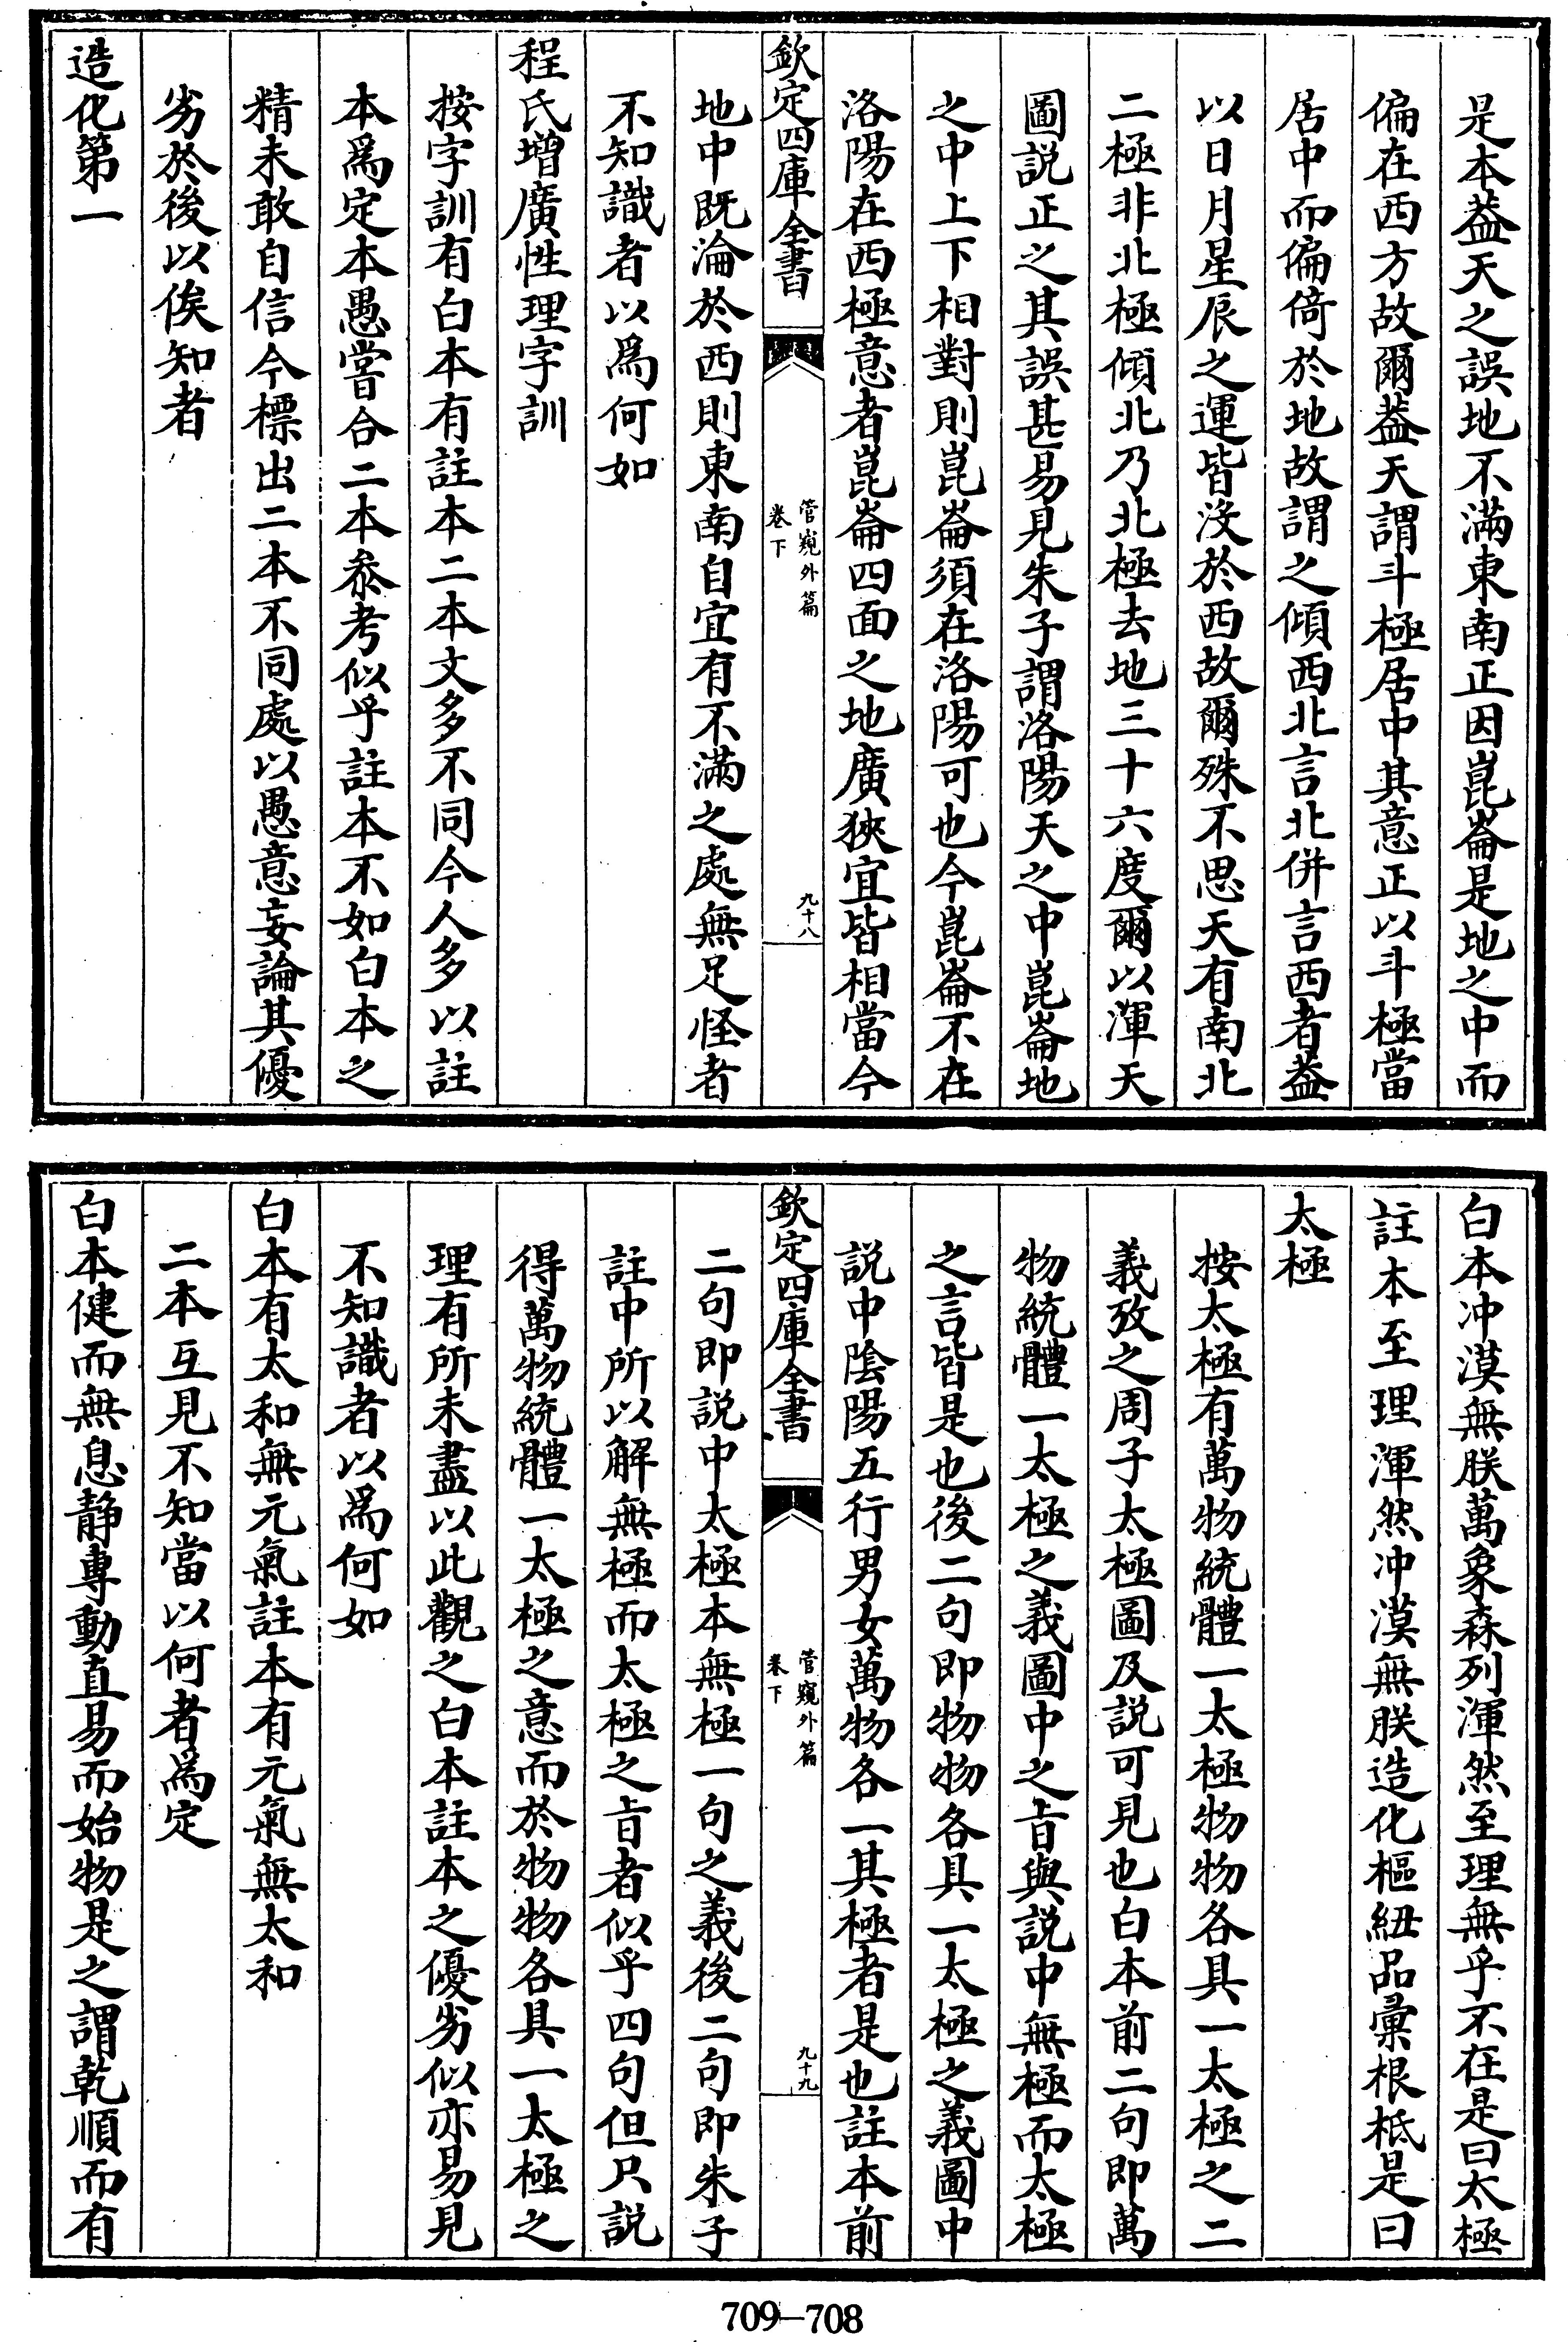 是本葢天之誤地不滿東南正因崑崙是地之中而
偏在西方故爾葢天謂斗極居中其意正以斗極當
居中而偏倚於地故謂之傾西北言北併言西者葢
以日月星辰之運皆沒於西故爾殊不思天有南北
二極非北極傾北乃北極去地三十六度爾以渾天
圖説正之其誤甚易見朱子謂洛陽天之中崑崙地
之中上下相對則崑崙須在洛陽可也今崑崙不在
洛陽在西極意者崑崙四面之地廣狹宜皆相當今
欽定四庫全書
管窺外篇
卷下
九十八
地中既淪於西則東南自宜有不滿之處無足怪者
不知識者以爲何如
程氏增廣性理字訓
按字訓有白本有註本二本文多不同今人多以註
本爲定本愚嘗合二本叅考似乎註本不如白本之
精未敢自信今標出二本不同處以愚意妄論其優
劣於後以俟知者
造化第一
白本冲漠無朕萬象森列渾然至理無乎不在是曰太極
註本至理渾然冲漠無朕造化樞紐品彚根柢是曰
太極
按太極有萬物統體一太極物物各具一太極之二
義攷之周子太極圖及説可見也白本前二句即萬
物統體一太極之義圖中之㫖與説中無極而太極
之言皆是也後二句即物物各具一太極之義圖中
説中陰陽五行男女萬物各一其極者是也註本前
欽定四庫全書
管窺外篇
卷下
九十九
二句即説中太極本無極一句之義後二句即朱子
註中所以解無極而太極之㫖者似乎四句但只説
得萬物統體一太極之意而於物物各具一太極之
理有所未盡以此觀之白本註本之優劣似亦易見
不知識者以爲何如
白本有太和無元氣註本有元氣無太和
二本互見不知當以何者爲定
白本健而無息静專動直易而始物是之謂乾順而有
709-708